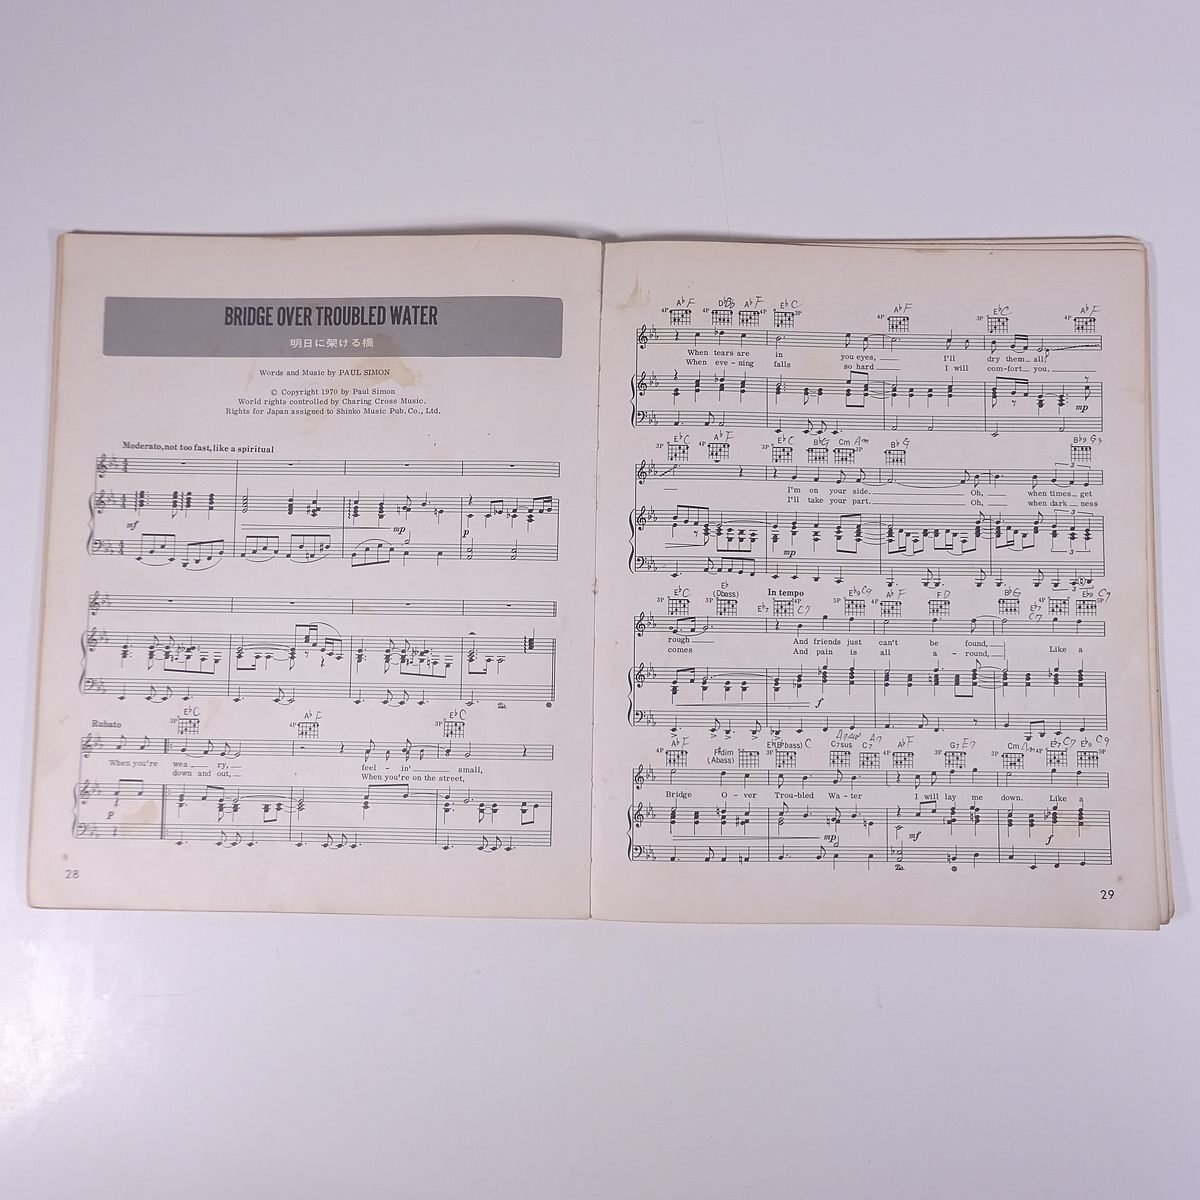 BRIDGE OVER TROUBLED WATER
明日に架ける橋
Words and Music by PAUL SIMON
© Copyright 1970 by Paul Simon
World rights controlled by Charing Cross Music.
Rights for Japan assigned to Shinko Music Pub. Co., Ltd.
Moderato, not too fast, like a spiritual
mf
mp
p
Rubato
3P E♭ C
4P A♭ F
3P E♭ C
When you're wea - ry, feel - in' small,
down and out, When you're on the street,
p
28
A♭ F D♭ A♭ F E♭ C A♭ F E♭ C A♭ F
When tears are in you eyes, I'll dry them all;
When eve - ning falls so hard I will com-fort you.
mp
E♭ C A♭ F E♭ C B♭ G Cm Am B♭ G B♭9 G9
I'm on your side. Oh, when times get
I'll take your part. Oh, when dark ness
mp
E♭ C E♭ (Dbass) In tempo E♭7 C7 E♭9 C9 A♭ F F D B♭ G E♭7 C7 E♭9 C9
rough And friends just can't be found,
comes And pain is all a - round, Like a
f
A♭ F F♯dim (Abass) E♭(B♭bass) C C7sus A7sus C7 A7 A♭ F G7 E7 Cm E♭7 C7 E♭9 C9
Bridge O - ver Trou-bled Wa - ter I will lay me down. Like a
mp mf f
29